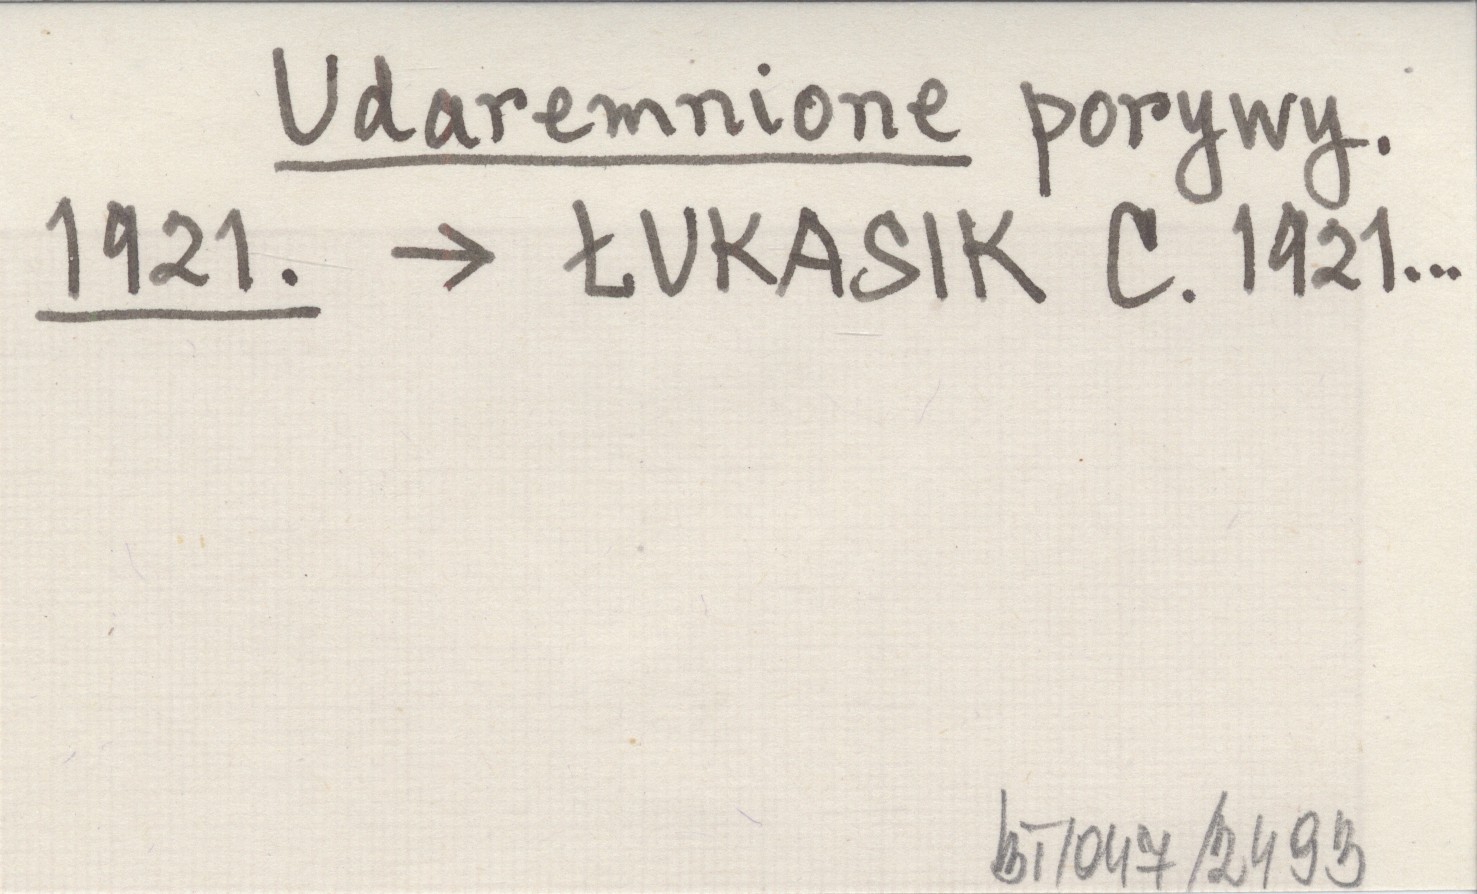 Udaremnione porywy.
1921. → ŁUKASIK C. 1921...
BT/047/2493